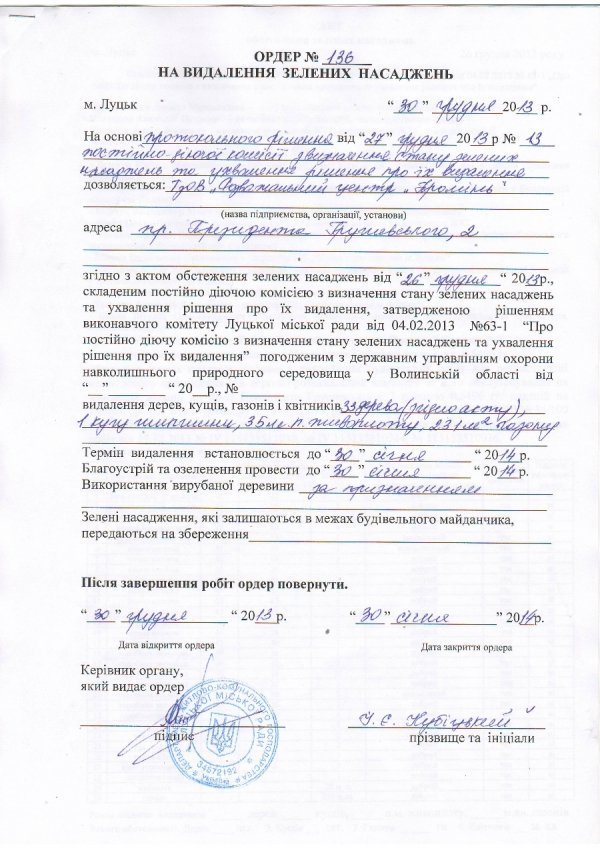 ОРДЕР № 136
НА ВИДАЛЕННЯ ЗЕЛЕНИХ НАСАДЖЕНЬ
м. Луцьк “ 30 ” грудня 2013 р.
На основі протокольного рішення від “27” грудня 2013 р № 13
постійно діючої комісії з визначення стану зелених
насаджень та ухвалення рішення про їх видалення
дозволяється: ТзОВ „ центр „Промінь“
(назва підприємства, організації, установи)
адреса пр. Президента Грушевського, 2
згідно з актом обстеження зелених насаджень від “26” грудня “ 2013р.,
складеним постійно діючою комісією з визначення стану зелених насаджень
та ухвалення рішення про їх видалення, затвердженою рішенням
виконавчого комітету Луцької міської ради від 04.02.2013 №63-1 “Про
постійно діючу комісію з визначення стану зелених насаджень та ухвалення
рішення про їх видалення” погодженим з державним управлінням охорони
навколишнього природного середовища у Волинській області від
“__”________ “ 20__р., № ________
видалення дерев, кущів, газонів і квітників 33 дерева (згідно акту),
1 кущ шипшини, 35 м.п. живоплоту, 231 м² газону
Термін видалення встановлюється до “ 30 ” січня “ 2014 р.
Благоустрій та озеленення провести до “ 30 ” січня “ 2014 р.
Використання вирубаної деревини за призначенням
Зелені насадження, які залишаються в межах будівельного майданчика,
передаються на збереження
Після завершення робіт ордер повернути.
“ 30 ” грудня “ 2013 р. “ 30 ” січня ” 2014р.
Дата відкриття ордера Дата закриття ордера
Керівник органу,
який видає ордер
Ю.Є. Кубіцький
підпис прізвище та ініціали
34572192